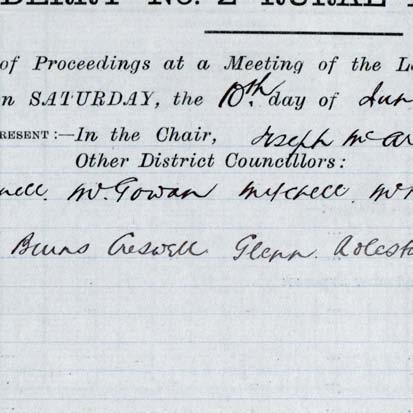 DERRY NO. 2 RURAL
of Proceedings at a Meeting of the L
n SATURDAY, the 10th day of Jun
RESENT:—In the Chair, Joseph McA
Other District Councillors:
nell. McGowan Mitchell. M
Burns Creswell Glenn.